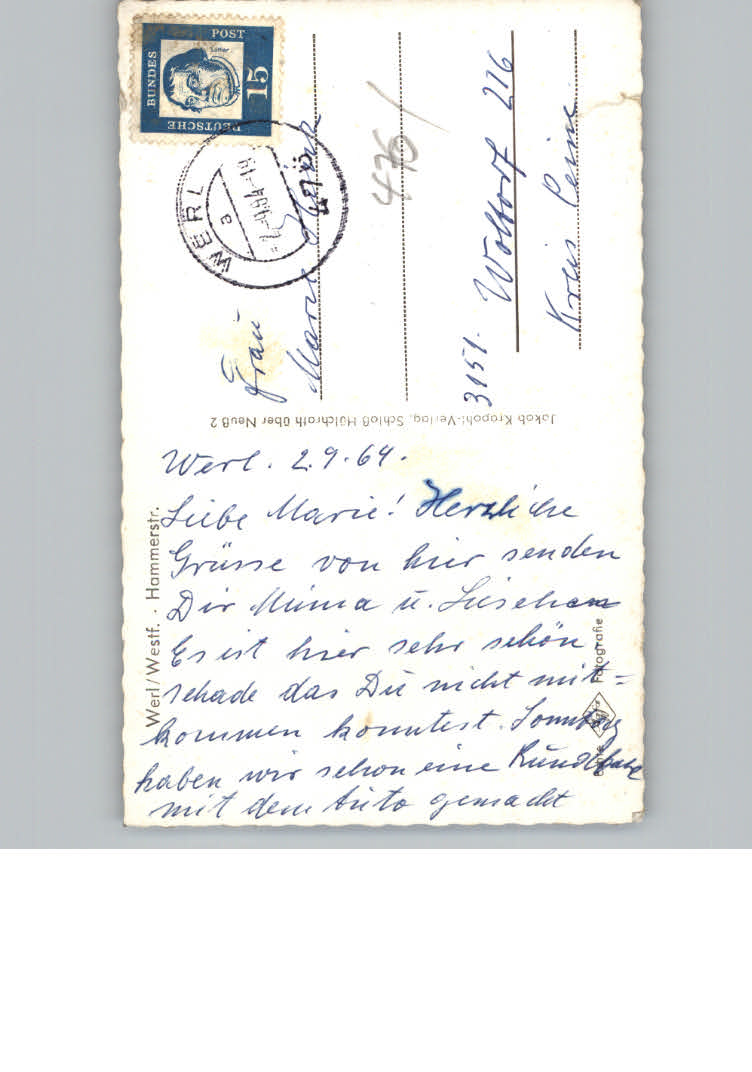 DEUTSCHE
BUNDES
POST
Luther
15
WERL
a
476
Frau
Marie
3151. Woltorf 216
Kreis Peine
Jakob Krapohl-Verlag, Schloß Hülchrath über Neuß 2
Werl/Westf. · Hammerstr.
Werl. 2.9.64.
Liebe Marie! Herzliche
Grüsse von hier senden
Dir Minna u. Lieschen
Es ist hier sehr schön
schade das Du nicht mit=
kommen konntest. Sonntag
haben wir schon eine Rundfahrt
mit dem Auto gemacht
Fotografie